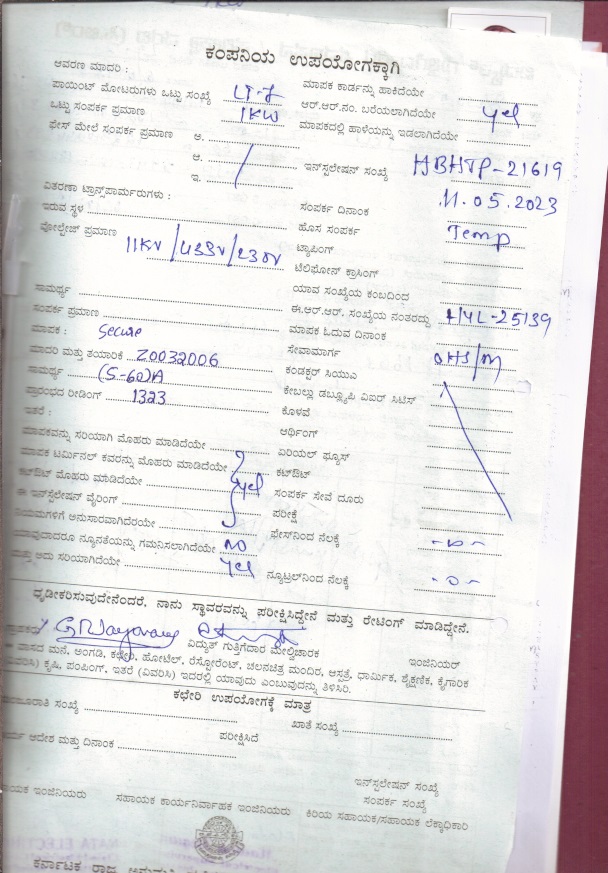 ಕಂಪನಿಯ ಉಪಯೋಗಕ್ಕಾಗಿ
ಆವರಣ ಮಾದರಿ :
ಮಾಪಕ ಕಾರ್ಡನ್ನು ಹಾಕಿದೆಯೇ
ಪಾಯಿಂಟ್ ಮೋಟರುಗಳು ಒಟ್ಟು ಸಂಖ್ಯೆ LT-7
ಆರ್.ಆರ್.ನಂ. ಬರೆಯಲಾಗಿದೆಯೇ yes
ಒಟ್ಟು ಸಂಪರ್ಕ ಪ್ರಮಾಣ 1KW
ಮಾಪಕದಲ್ಲಿ ಹಾಳೆಯನ್ನು ಇಡಲಾಗಿದೆಯೇ
ಫೇಸ್ ಮೇಲೆ ಸಂಪರ್ಕ ಪ್ರಮಾಣ ಅ.
ಆ.
ಇನ್‌ಸ್ಟಲೇಷನ್ ಸಂಖ್ಯೆ HBHTP-21619
ಇ.
ವಿತರಣಾ ಟ್ರಾನ್ಸ್‌ಪಾರ್ಮರುಗಳು :
ಸಂಪರ್ಕ ದಿನಾಂಕ 11.05.2023
ಇರುವ ಸ್ಥಳ
ಹೊಸ ಸಂಪರ್ಕ Temp
ವೋಲ್ಟೇಜ್ ಪ್ರಮಾಣ 11KV/433V/230V
ಟ್ಯಾಪಿಂಗ್
ಟೆಲಿಫೋನ್ ಕ್ರಾಸಿಂಗ್
ಸಾಮರ್ಥ್ಯ
ಯಾವ ಸಂಖ್ಯೆಯ ಕಂಬದಿಂದ
ಸಂಪರ್ಕ ಪ್ರಮಾಣ
ಈ.ಆರ್.ಆರ್. ಸಂಖ್ಯೆಯ ನಂತರದ್ದು HYL-25139
ಮಾಪಕ : Secure
ಮಾಪಕ ಓದುವ ದಿನಾಂಕ
ಮಾದರಿ ಮತ್ತು ತಯಾರಿಕೆ Z0032006
ಸೇವಾಮಾರ್ಗ OHS/M
ಸಾಮರ್ಥ್ಯ (5-60)A
ಕಂಡಕ್ಟರ್ ಸಿಯುಎ
ಪ್ರಾರಂಭದ ರೀಡಿಂಗ್ 1323
ಕೇಬಲ್ಲು ಡಬ್ಲ್ಯೂಪಿ ಏಐರ್ ಸಿಟಿಸ್
ಇತರೆ :
ಕೊಳವೆ
ಮಾಪಕವನ್ನು ಸರಿಯಾಗಿ ಮೊಹರು ಮಾಡಿದೆಯೇ
ಆರ್ಥಿಂಗ್
ಮಾಪಕ ಟರ್ಮಿನಲ್ ಕವರನ್ನು ಮೊಹರು ಮಾಡಿದೆಯೇ
ಏರಿಯಲ್ ಫ್ಯೂಸ್
ಕಟ್‌ಔಟ್ ಮೊಹರು ಮಾಡಿದೆಯೇ yes
ಕಟ್‌ಔಟ್
ಈ ಇನ್‌ಸ್ಟಲೇಷನ್ ವೈರಿಂಗ್
ಸಂಪರ್ಕ ಸೇವೆ ದೂರು
ನಿಯಮಗಳಿಗೆ ಅನುಸಾರವಾಗಿದೆರಯೇ
ಪರೀಕ್ಷೆ
ಯಾವುದಾದರೂ ನ್ಯೂನತೆಯನ್ನು ಗಮನಿಸಲಾಗಿದೆಯೇ NO
ಫೇಸ್‌ನಿಂದ ನೆಲಕ್ಕೆ
ಮತ್ತು ಅದು ಸರಿಯಾಗಿದೆಯೇ yes
ನ್ಯೂಟ್ರಲ್‌ನಿಂದ ನೆಲಕ್ಕೆ -0-
ಧೃಡೀಕರಿಸುವುದೇನೆಂದರೆ, ನಾನು ಸ್ಥಾವರವನ್ನು ಪರೀಕ್ಷಿಸಿದ್ದೇನೆ ಮತ್ತು ರೇಟಿಂಗ್ ಮಾಡಿದ್ದೇನೆ.
ವಿದ್ಯುತ್ ಗುತ್ತಿಗೆದಾರ ಮೇಲ್ವಿಚಾರಕ
ಇಂಜಿನಿಯರ್
ವಾಸದ ಮನೆ, ಅಂಗಡಿ, ಕಛೇರಿ, ಹೋಟೆಲ್, ರೆಸ್ಟೋರೆಂಟ್, ಚಲನಚಿತ್ರ ಮಂದಿರ, ಆಸ್ಪತ್ರೆ, ಧಾರ್ಮಿಕ, ಶೈಕ್ಷಣಿಕ, ಕೈಗಾರಿಕ
ಕೃಷಿ, ಪಂಪಿಂಗ್, ಇತರೆ (ವಿವರಿಸಿ) ಇದರಲ್ಲಿ ಯಾವುದು ಎಂಬುವುದನ್ನು ತಿಳಿಸಿರಿ.
ಕಛೇರಿ ಉಪಯೋಗಕ್ಕೆ ಮಾತ್ರ
ಸಂಖ್ಯೆ
ಖಾತೆ ಸಂಖ್ಯೆ
ಆದೇಶ ಮತ್ತು ದಿನಾಂಕ
ಪರೀಕ್ಷಿಸಿದೆ
ಇನ್‌ಸ್ಟಲೇಷನ್ ಸಂಖ್ಯೆ
ಸಂಪರ್ಕ ಸಂಖ್ಯೆ
ಇಂಜಿನಿಯರು
ಸಹಾಯಕ ಕಾರ್ಯನಿರ್ವಾಹಕ ಇಂಜಿನಿಯರು
ಕಿರಿಯ ಸಹಾಯಕ/ಸಹಾಯಕ ಲೆಕ್ಕಾಧಿಕಾರಿ
ಕರ್ನಾಟಕ ರಾಜ್ಯ